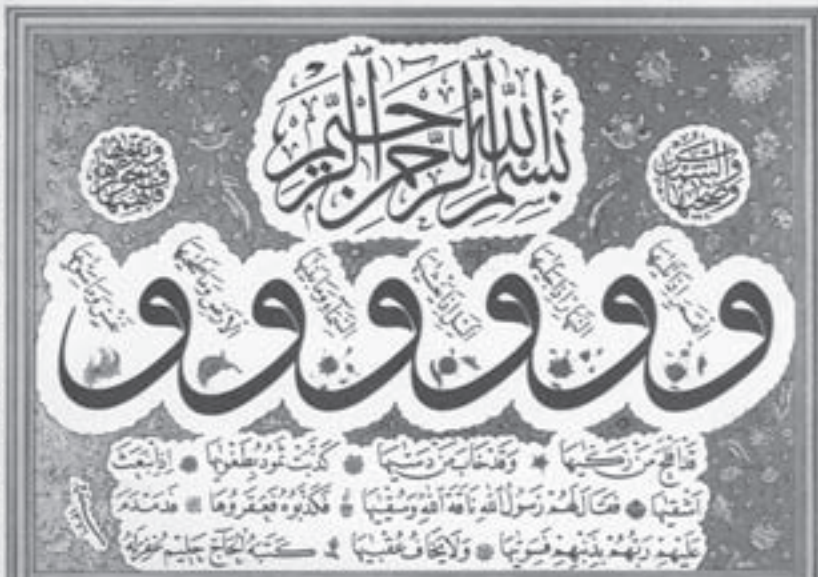 بِسْمِ اللهِ الرَّحْمٰنِ الرَّحِيمِ
وَالشَّمْسِ وَضُحٰيهَا
وَالْقَمَرِ اِذَا تَلٰيهَا
وَالنَّهَارِ اِذَا جَلّٰيهَا
وَالَّيْلِ اِذَا يَغْشٰيهَا
وَالسَّمَاءِ وَمَا بَنٰيهَا
وَالْاَرْضِ وَمَا طَحٰيهَا
وَنَفْسٍ وَمَا سَوّٰيهَا
فَاَلْهَمَهَا فُجُورَهَا وَتَقْوٰيهَا
قَدْ اَفْلَحَ مَنْ زَكّٰيهَا وَقَدْ خَابَ مَنْ دَسّٰيهَا كَذَّبَتْ ثَمُودُ بِطَغْوٰيهَا اِذِ انْبَعَثَ
اَشْقٰيهَا فَقَالَ لَهُمْ رَسُولُ اللهِ نَاقَةَ اللهِ وَسُقْيٰهَا فَكَذَّبُوهُ فَعَقَرُوهَا فَدَمْدَمَ
عَلَيْهِمْ رَبُّهُمْ بِذَنْبِهِمْ فَسَوّٰيهَا وَلَا يَخَافُ عُقْبٰيهَا كتبه الحاج حليم غفر له